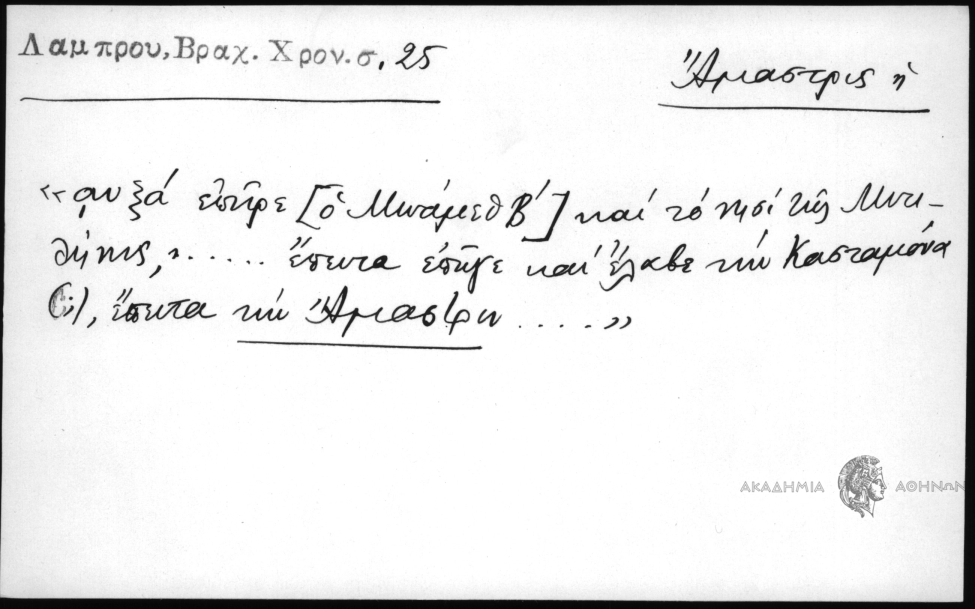 Λαμπρου, Βραχ. Χρον. σ. 25
Ἄμαστρις ἡ
«αυξά ἐπῆρε [ὁ Μωάμεθ Β΄] καί τό νησί τῆς Μυτι-
λήνης, ..... ἔπειτα ἐπῆγε καί ἔλαβε τήν Κασταμόνα
(;), ἔπειτα τήν Ἄμαστριν ....»
ΑΚΑΔΗΜΙΑ ΑΘΗΝΩΝ